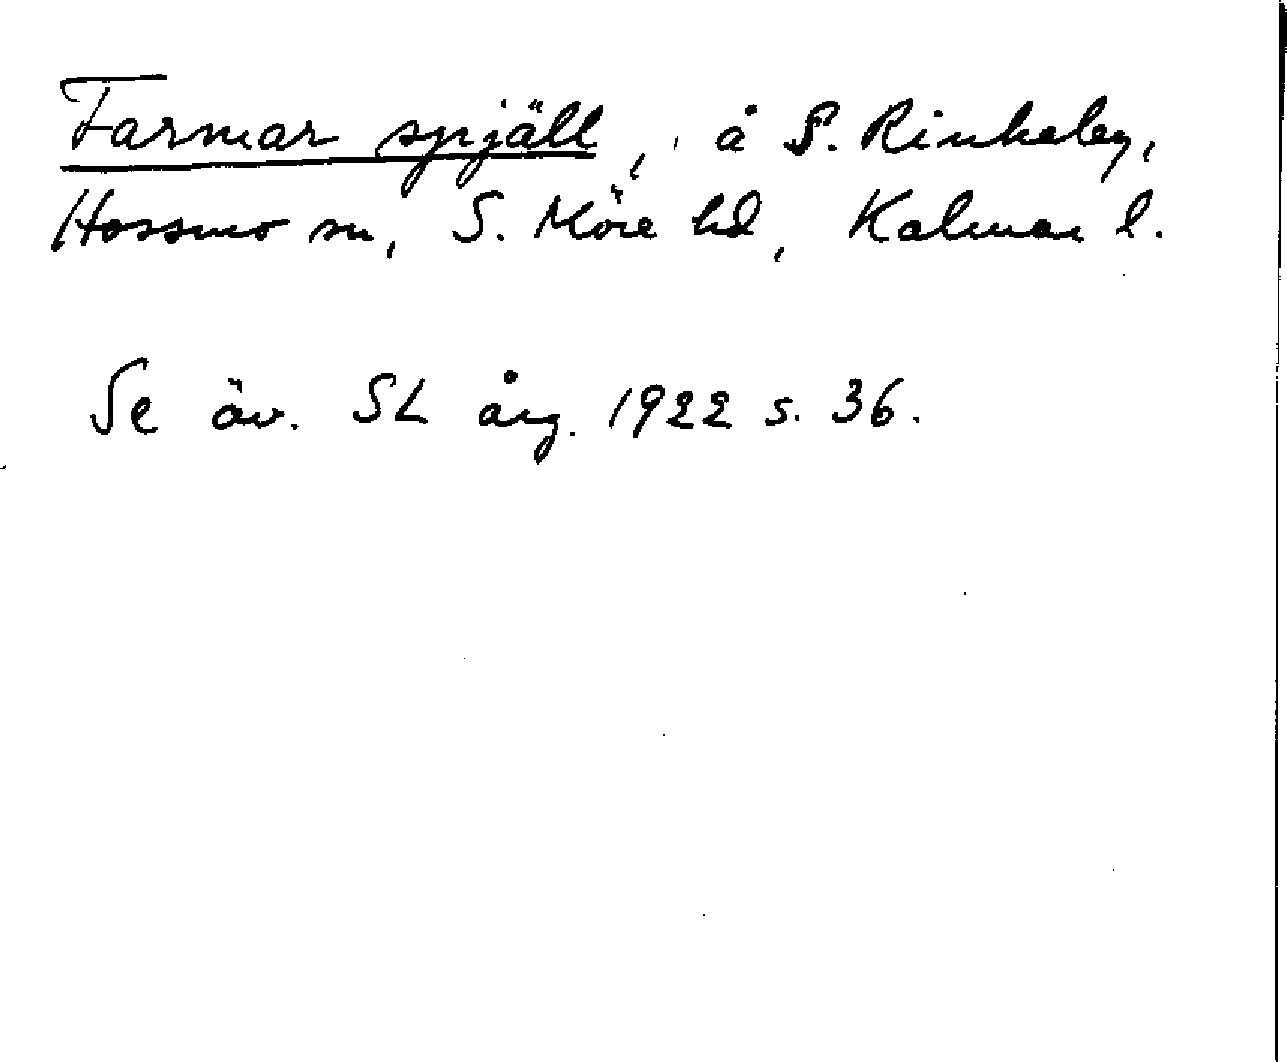 Farmar spjäll, å S. Rinkeby,
Hossmo sn, S. Möre hd, Kalmar l.
Se äv. SL årg. 1922 s. 36.